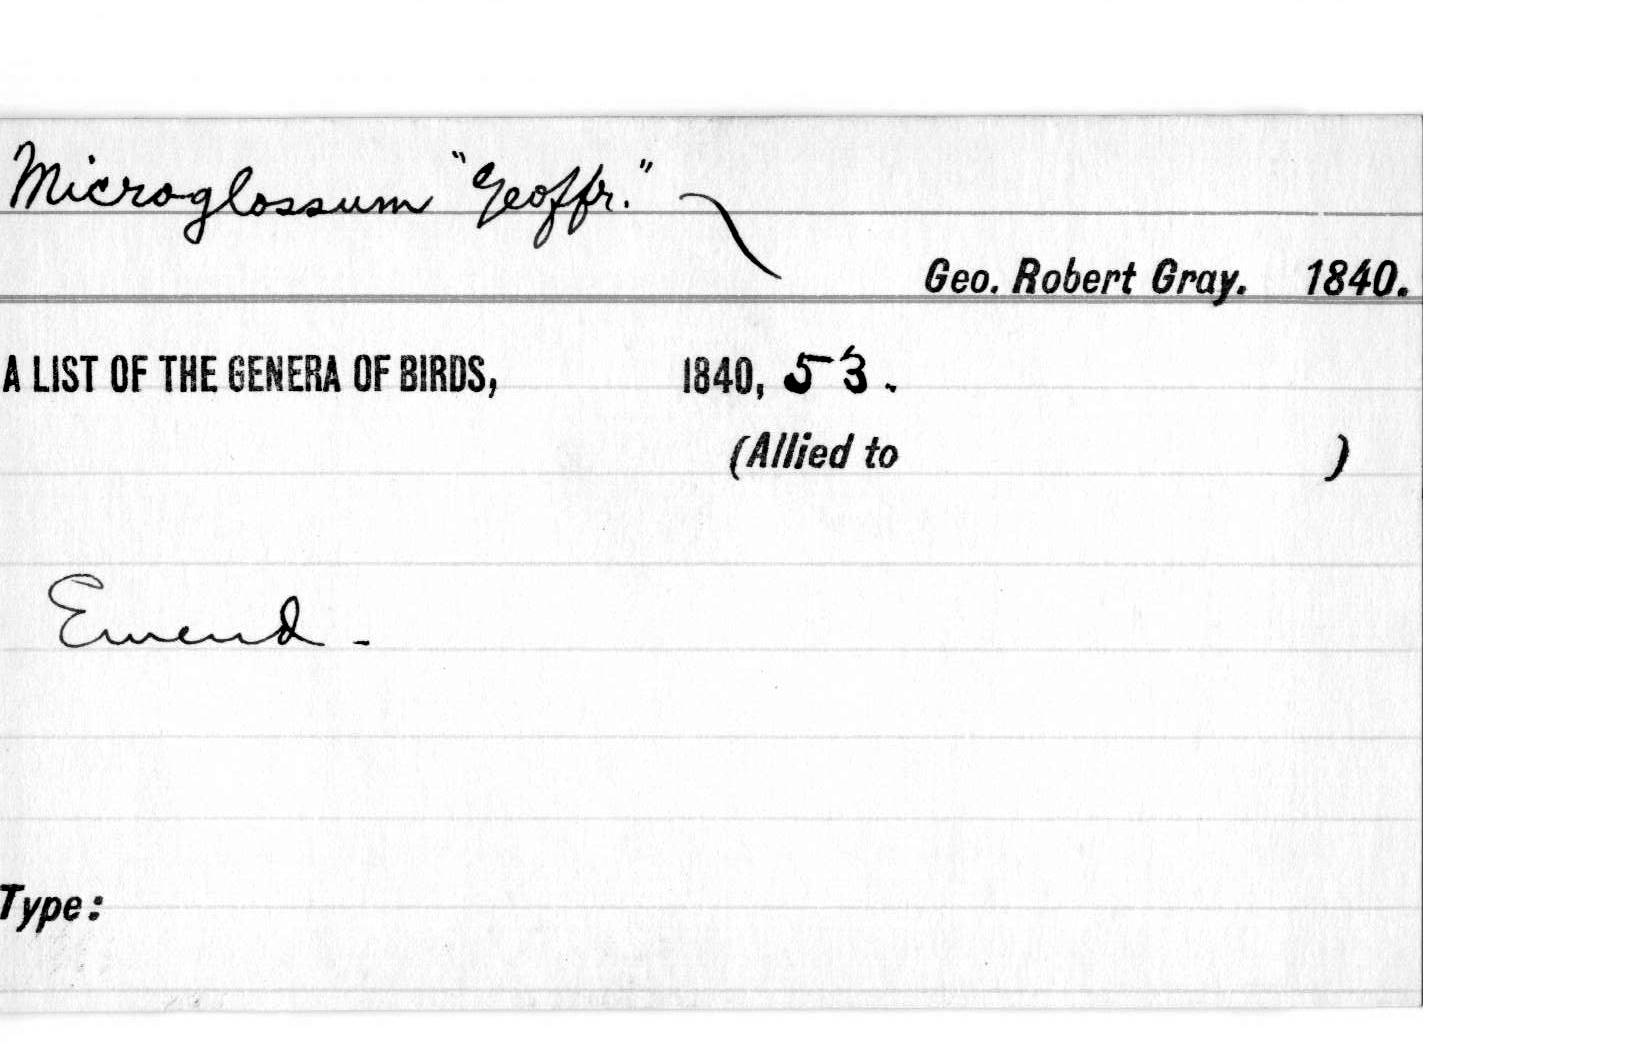 Microglossum "Geoffr."
Geo. Robert Gray. 1840.
A LIST OF THE GENERA OF BIRDS, 1840, 53.
(Allied to )
Emend -
Type: